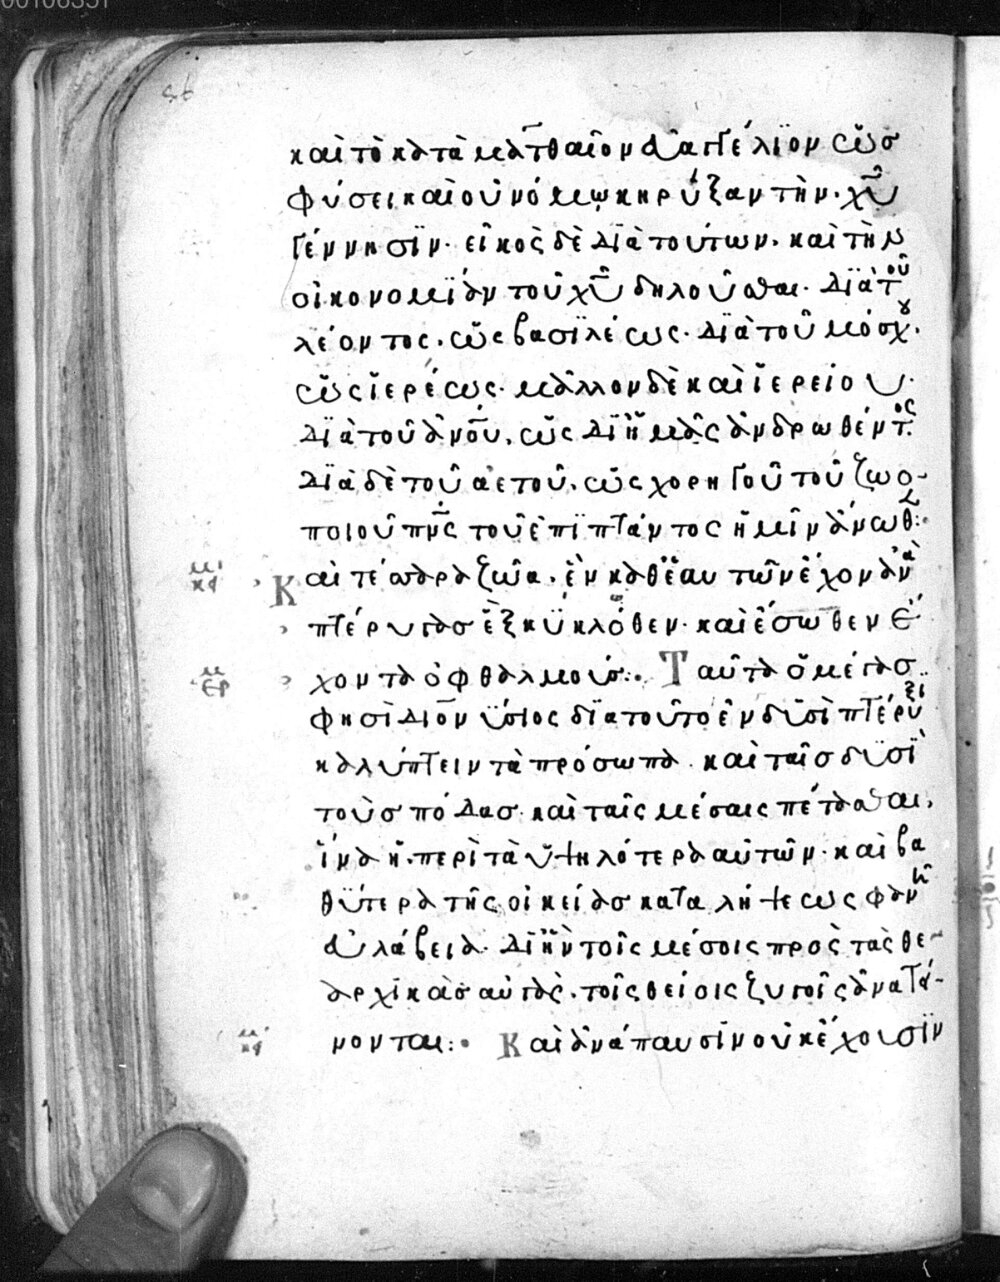 00106351
56
καὶ τὸ κατὰ ματθαῖον ἐυαγγέλϊον ὡσ
φύσει καὶ οὐ νόμῳ κηρύξαν τὴν· χῦ
γέννησϊν· εἰκὸς δὲ διὰ τούτων· καὶ τὴν
οἰκονομΐαν τοῦ χῦ δηλοῦσθαι· διὰ τοῦ
λέοντος· ὡς βασϊλέως· διὰ τοῦ μόσχου·
ὡς ἱερέως· μᾶλλον δὲ καὶ ἱερείου·
διὰ τοῦ ἀνου· ὡς δι ἡμᾶς ἀνδρωθέντος·
διὰ δὲ τοῦ αετοῦ· ὡς χορηγοῦ τοῦ ζωο-
ποιοῦ πνς τοῦ ἐπϊπτάντος ἡμῖν ἄνωθ:·
κει
κδ
Καὶ τέσσαρα ζῶα· ἓν καθ ἓν αυτῶν ἔχον ἀνὰ
πτέρυγασ ἓξ κϋκλόθεν· καὶ ἔσωθεν ἔ
ερ
χοντα ὀφθαλμούσ:· Ταῦτα ὁ μέγασ
φησὶ διον ϋσιος διατοῦτο ἐν δϋσὶ πτέρυξϊ
καλύπτειν τὰ πρόσωπα· καὶ ταῖσ δϋσὶ
τοὺσ πόδασ· καὶ ταῖς μέσαις πέτασθαι·
ἵνα ἦ· περὶ τὰ ὑψηλότερα αὐτῶν· καὶ βα
θΰτερα τῆς οἰκείασ καταλήψεως φανῆ
ἐυλάβεια· δι ἣν τοῖς μέσοις πρὸς τὰς θε-
αρχϊκὰσ αὐγὰς· τοῖς θείοις ζυγοῖς ἀνατά-
κει
κδ
μονται:· Καὶ ἀνάπαυσϊν οὐκ ἔχουσϊν